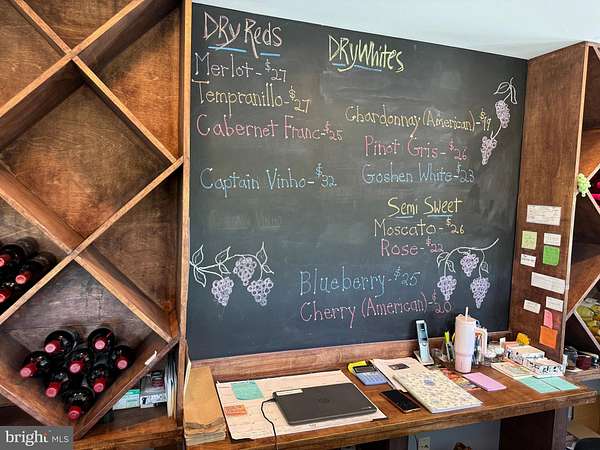 DRy Reds
Merlot - $27
Tempranillo - $27
Cabernet Franc - $25
Captain Vinho - $32
DRy Whites
Chardonnay (American) $19
Pinot Gris - $26
Goshen White - $23
Semi Sweet
Moscato - $26
Rose - $22
Blueberry - $25
Cherry (American) - $20
bright MLS